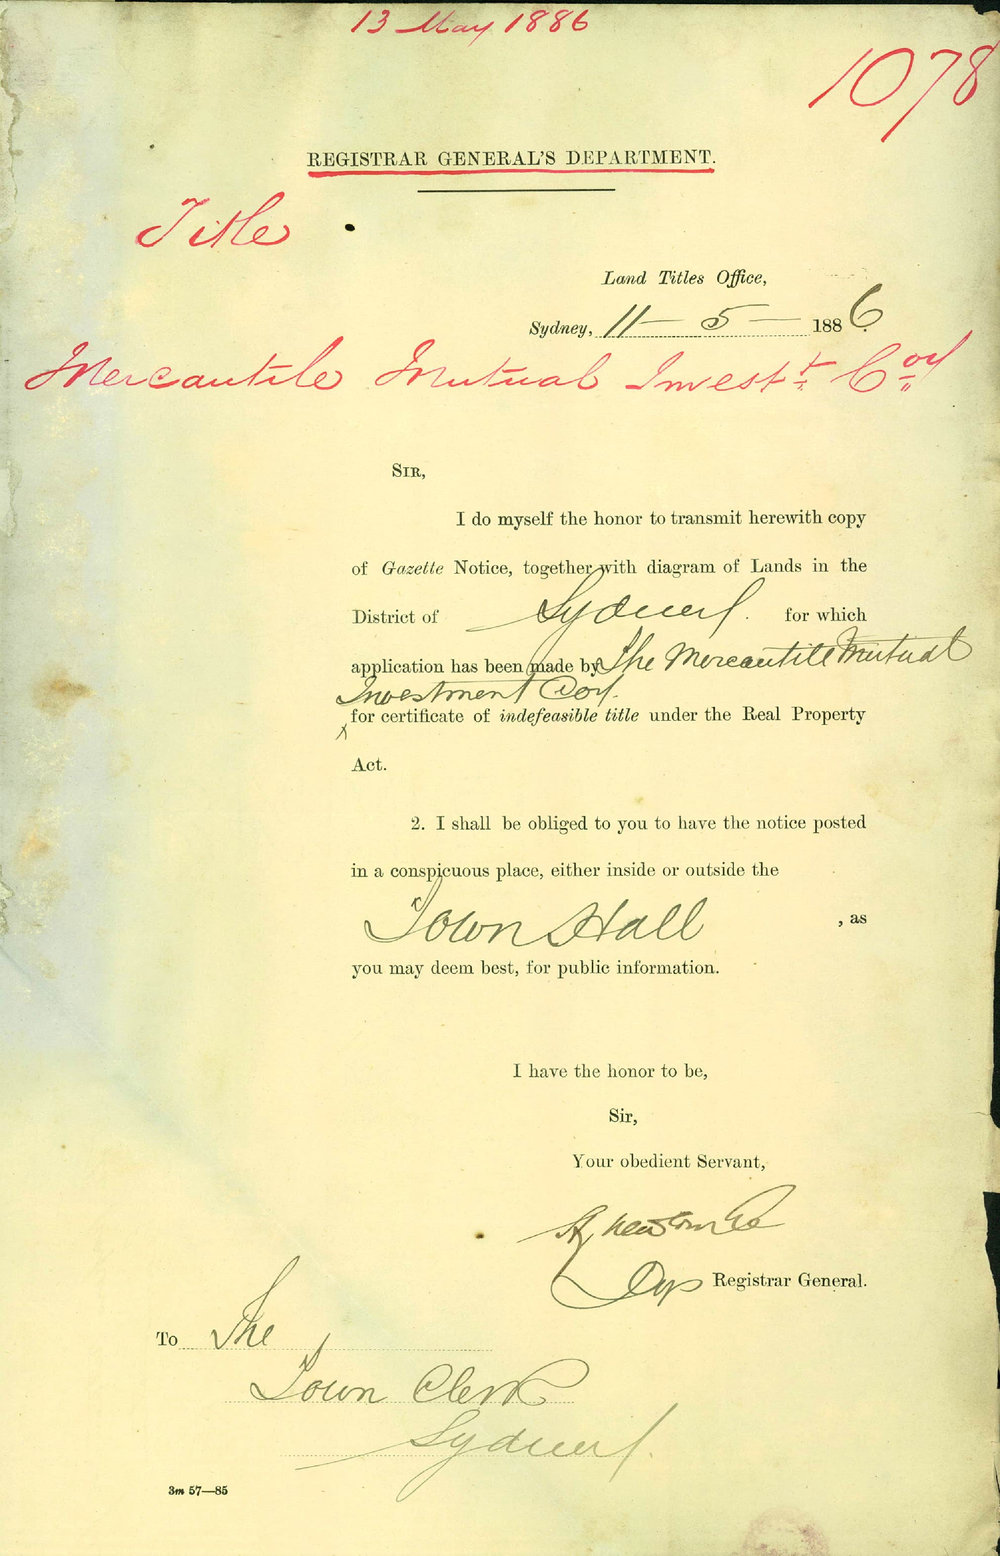 13 May 1886
1078
REGISTRAR GENERAL'S DEPARTMENT.
Title
Land Titles Office,
Sydney, 11 — 5 — 1886.
Mercantile Mutual Invest.t Coy
SIR,
I do myself the honor to transmit herewith copy
of Gazette Notice, together with diagram of Lands in the
District of Sydney. for which
application has been made by The Mercantile Mutual
Investment Coy.
for certificate of indefeasible title under the Real Property
Act.
2. I shall be obliged to you to have the notice posted
in a conspicuous place, either inside or outside the
Town Hall , as
you may deem best, for public information.
I have the honor to be,
Sir,
Your obedient Servant,
Dep Registrar General.
To The
Town Clerk
Sydney.
3m 57—85